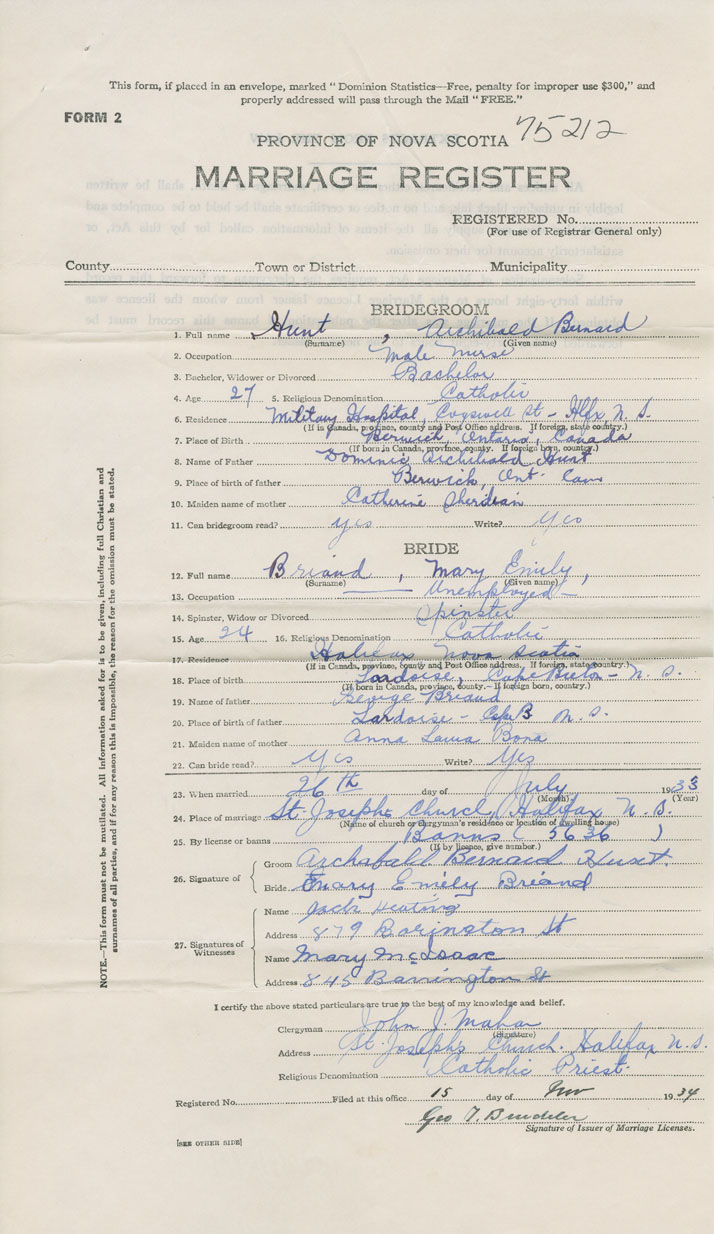 This form, if placed in an envelope, marked "Dominion Statistics—Free, penalty for improper use $300," and
properly addressed will pass through the Mail "FREE."
FORM 2
PROVINCE OF NOVA SCOTIA 75212
MARRIAGE REGISTER
REGISTERED No.
(For use of Registrar General only)
County Town or District Municipality
BRIDEGROOM
1. Full name Hunt, Archibald Bernard
(Surname) (Given name)
2. Occupation Male Nurse
3. Bachelor, Widower or Divorced Bachelor
4. Age 27 5. Religious Denomination Catholic
6. Residence Military Hospital, Cogswell St - Hlfx N. S.
(If in Canada, province, county and Post Office address. If foreign, state country.)
7. Place of Birth Berwick, Ontario, Canada
(If born in Canada, province, county. If foreign born, country.)
8. Name of Father Dominic Archibald Hunt
9. Place of birth of father Berwick, Ont. Can
10. Maiden name of mother Catherine Sheridan
11. Can bridegroom read? yes Write? Yes
BRIDE
12. Full name Briand, Mary Emily,
(Surname) (Given name)
13. Occupation — Unemployed —
14. Spinster, Widow or Divorced Spinster
15. Age 24 16. Religious Denomination Catholic
17. Residence Halifax Nova Scotia
(If in Canada, province, county and Post Office address. If foreign, state country.)
18. Place of birth Lardoise, Cape Breton - N. S.
(If born in Canada, province, county.—If foreign born, country.)
19. Name of father George Briand
20. Place of birth of father Lardoise - Cape B N. S.
21. Maiden name of mother Anna Bona
22. Can bride read? Yes Write? Yes
23. When married 26th day of July 1933
(Month) (Year)
24. Place of marriage St. Josephs Church, Halifax N. S.
(Name of church or clergyman's residence or location of dwelling house)
25. By license or banns Banns (5636)
(If by licence, give number.)
26. Signature of
Groom Archibald Bernard Hunt.
Bride Mary Emily Briand
27. Signatures of Witnesses
Name Jack Keating
Address 879 Barington St
Name Mary McIsaac
Address 845 Barrington St
I certify the above stated particulars are true to the best of my knowledge and belief.
Clergyman John J. Mahar
(Signature)
Address St. Joseph's Church. Halifax N. S.
Religious Denomination Catholic Priest.
Registered No. Filed at this office 15 day of Nov 1934
Geo T.
Signature of Issuer of Marriage Licenses.
[SEE OTHER SIDE]
NOTE.—This form must not be mutilated. All information asked for is to be given, including full Christian and
surnames of all parties, and if for any reason this is impossible, the reason for the omission must be stated.